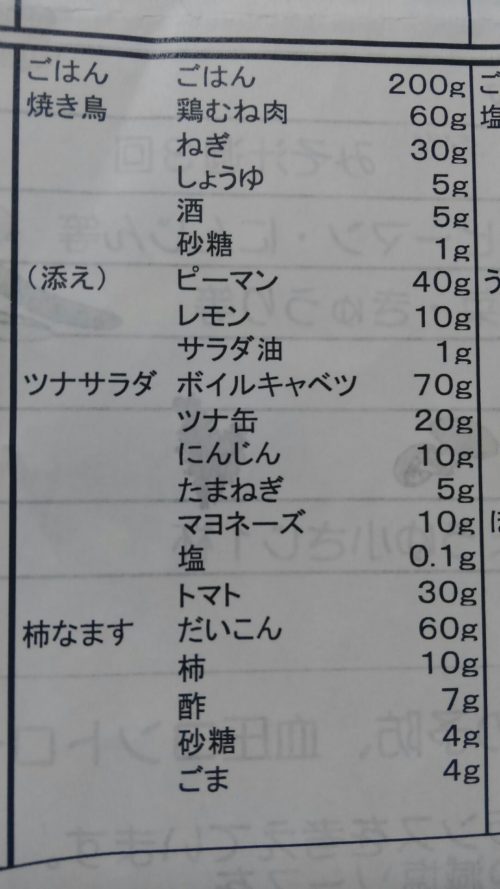 ごはん ごはん 200g
焼き鳥 鶏むね肉 60g 塩
ねぎ 30g
しょうゆ 5g
酒 5g
砂糖 1g
（添え） ピーマン 40g
レモン 10g
サラダ油 1g
ツナサラダ ボイルキャベツ 70g
ツナ缶 20g
にんじん 10g
たまねぎ 5g
マヨネーズ 10g
塩 0.1g
トマト 30g
柿なます だいこん 60g
柿 10g
酢 7g
砂糖 4g
ごま 4g